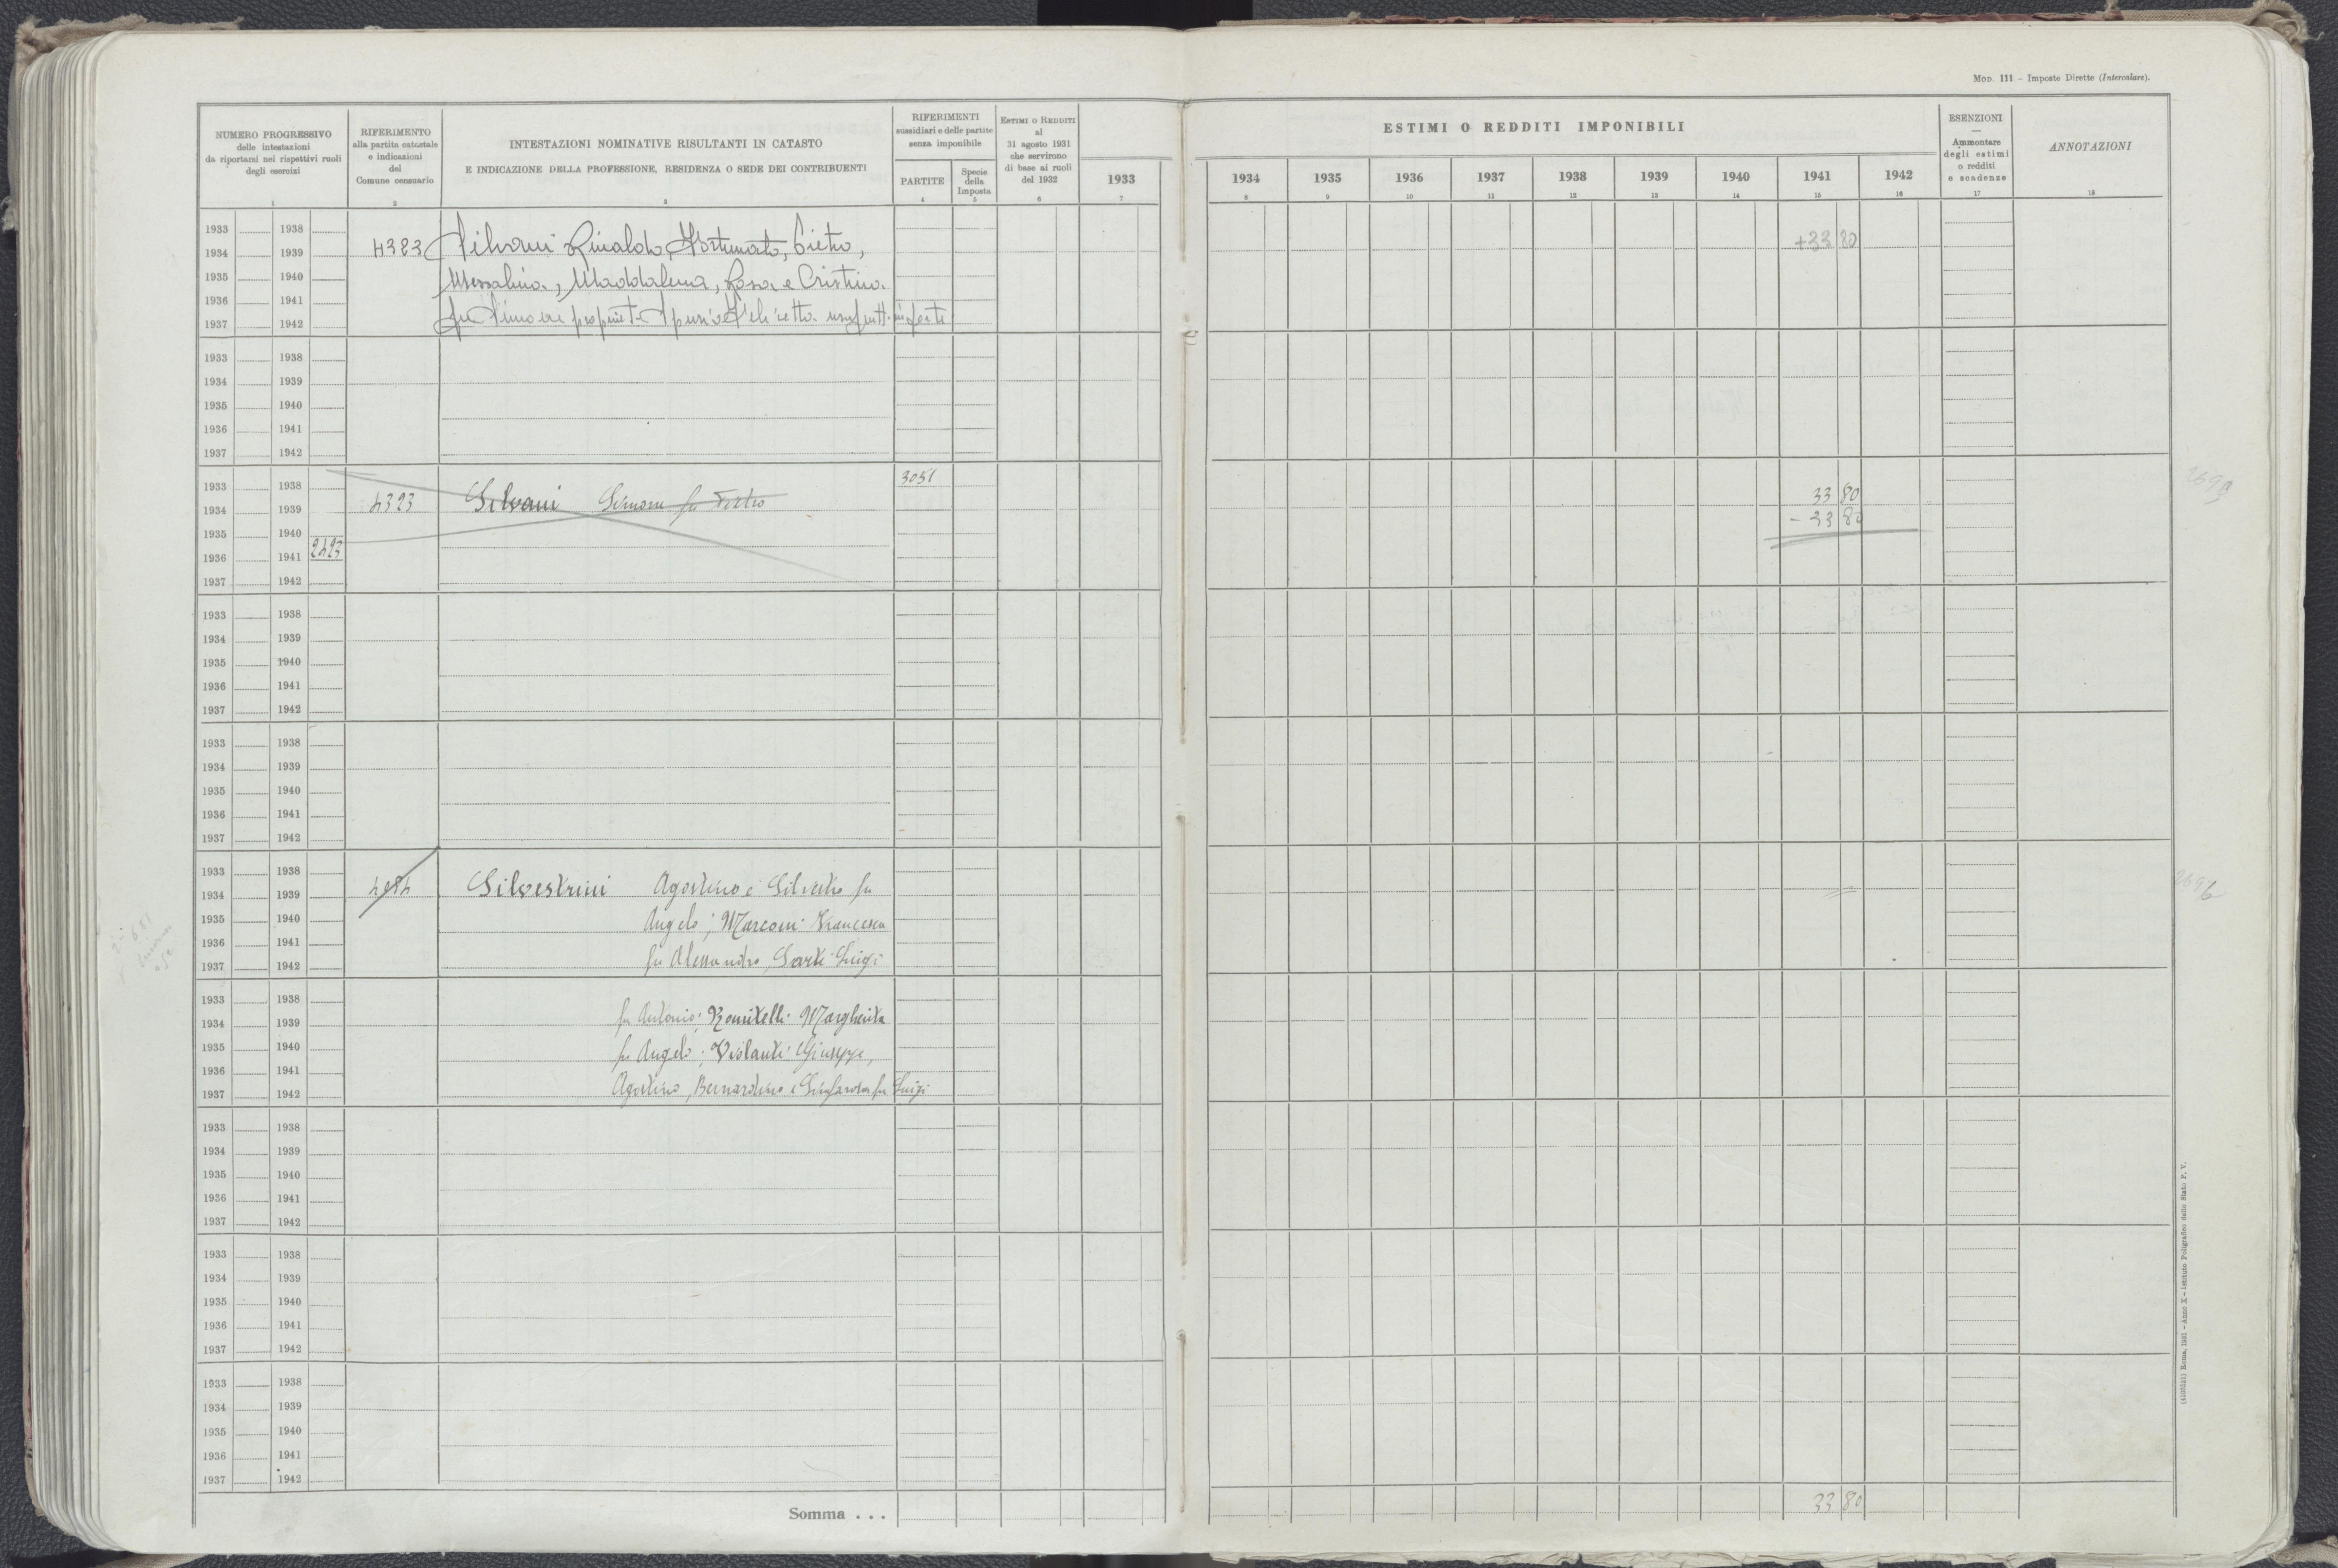 Mod. 111 - Imposte Dirette (Intercalare).
NUMERO PROGRESSIVO
delle intestazioni
da riportarsi nei rispettivi ruoli
degli esercizi
1
RIFERIMENTO
alla partita catastale
e indicazioni
del
Comune censuario
2
INTESTAZIONI NOMINATIVE RISULTANTI IN CATASTO
E INDICAZIONE DELLA PROFESSIONE, RESIDENZA O SEDE DEI CONTRIBUENTI
3
RIFERIMENTI
sussidiari e delle partite
senza imponibile
PARTITE
4
Specie
della
Imposta
5
Estimi o Redditi
al
31 agosto 1931
che servirono
di base ai ruoli
del 1932
6
1933
7
ESTIMI O REDDITI IMPONIBILI
1934 1935 1936 1937 1938 1939 1940 1941 1942
8 9 10 11 12 13 14 15 16
ESENZIONI
—
Ammontare
degli estimi
o redditi
e scadenze
17
ANNOTAZIONI
18
1933 1938
1934 1939 4383 Silvani Rinaldo, Fortunato, Pietro, +33 80
1935 1940 Messalina, Maddalena, Rosa e Cristina
1936 1941
1937 1942 fu Simone propriet.
1933 1938
1934 1939
1935 1940
1936 1941
1937 1942
1933 1938 3051
1934 1939 4323 Silvani Simone fu Pietro 33 80
1935 1940 - 33 80
1936 1941 2423
1937 1942
1933 1938
1934 1939
1935 1940
1936 1941
1937 1942
1933 1938
1934 1939
1935 1940
1936 1941
1937 1942
1933 1938
1934 1939 Silvestrini Agostino e Silvestro fu
1935 1940 Angelo; Marconi Francesca
1936 1941
1937 1942 fu Alessandro, Sarti Luigi
1933 1938
1934 1939 fu Antonio; Romitelli Margherita
1935 1940 fu Angelo; Violanti Giuseppe,
1936 1941
1937 1942 Agostino, Bernardino e Sinforosa fu Luigi
1933 1938
1934 1939
1935 1940
1936 1941
1937 1942
1933 1938
1934 1939
1935 1940
1936 1941
1937 1942
1933 1938
1934 1939
1935 1940
1936 1941
1937 1942
Somma . . . 33 80